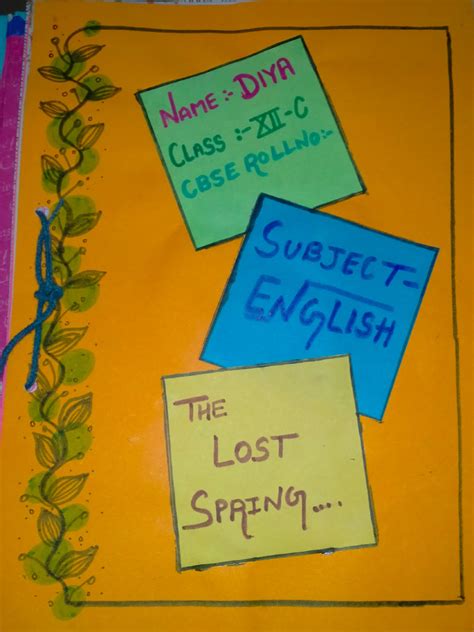 NAME:- DIYA
CLASS :- XII-C
CBSE ROLLNO:-
SUBJECT-
ENGLISH
THE
LOST
SPRING....